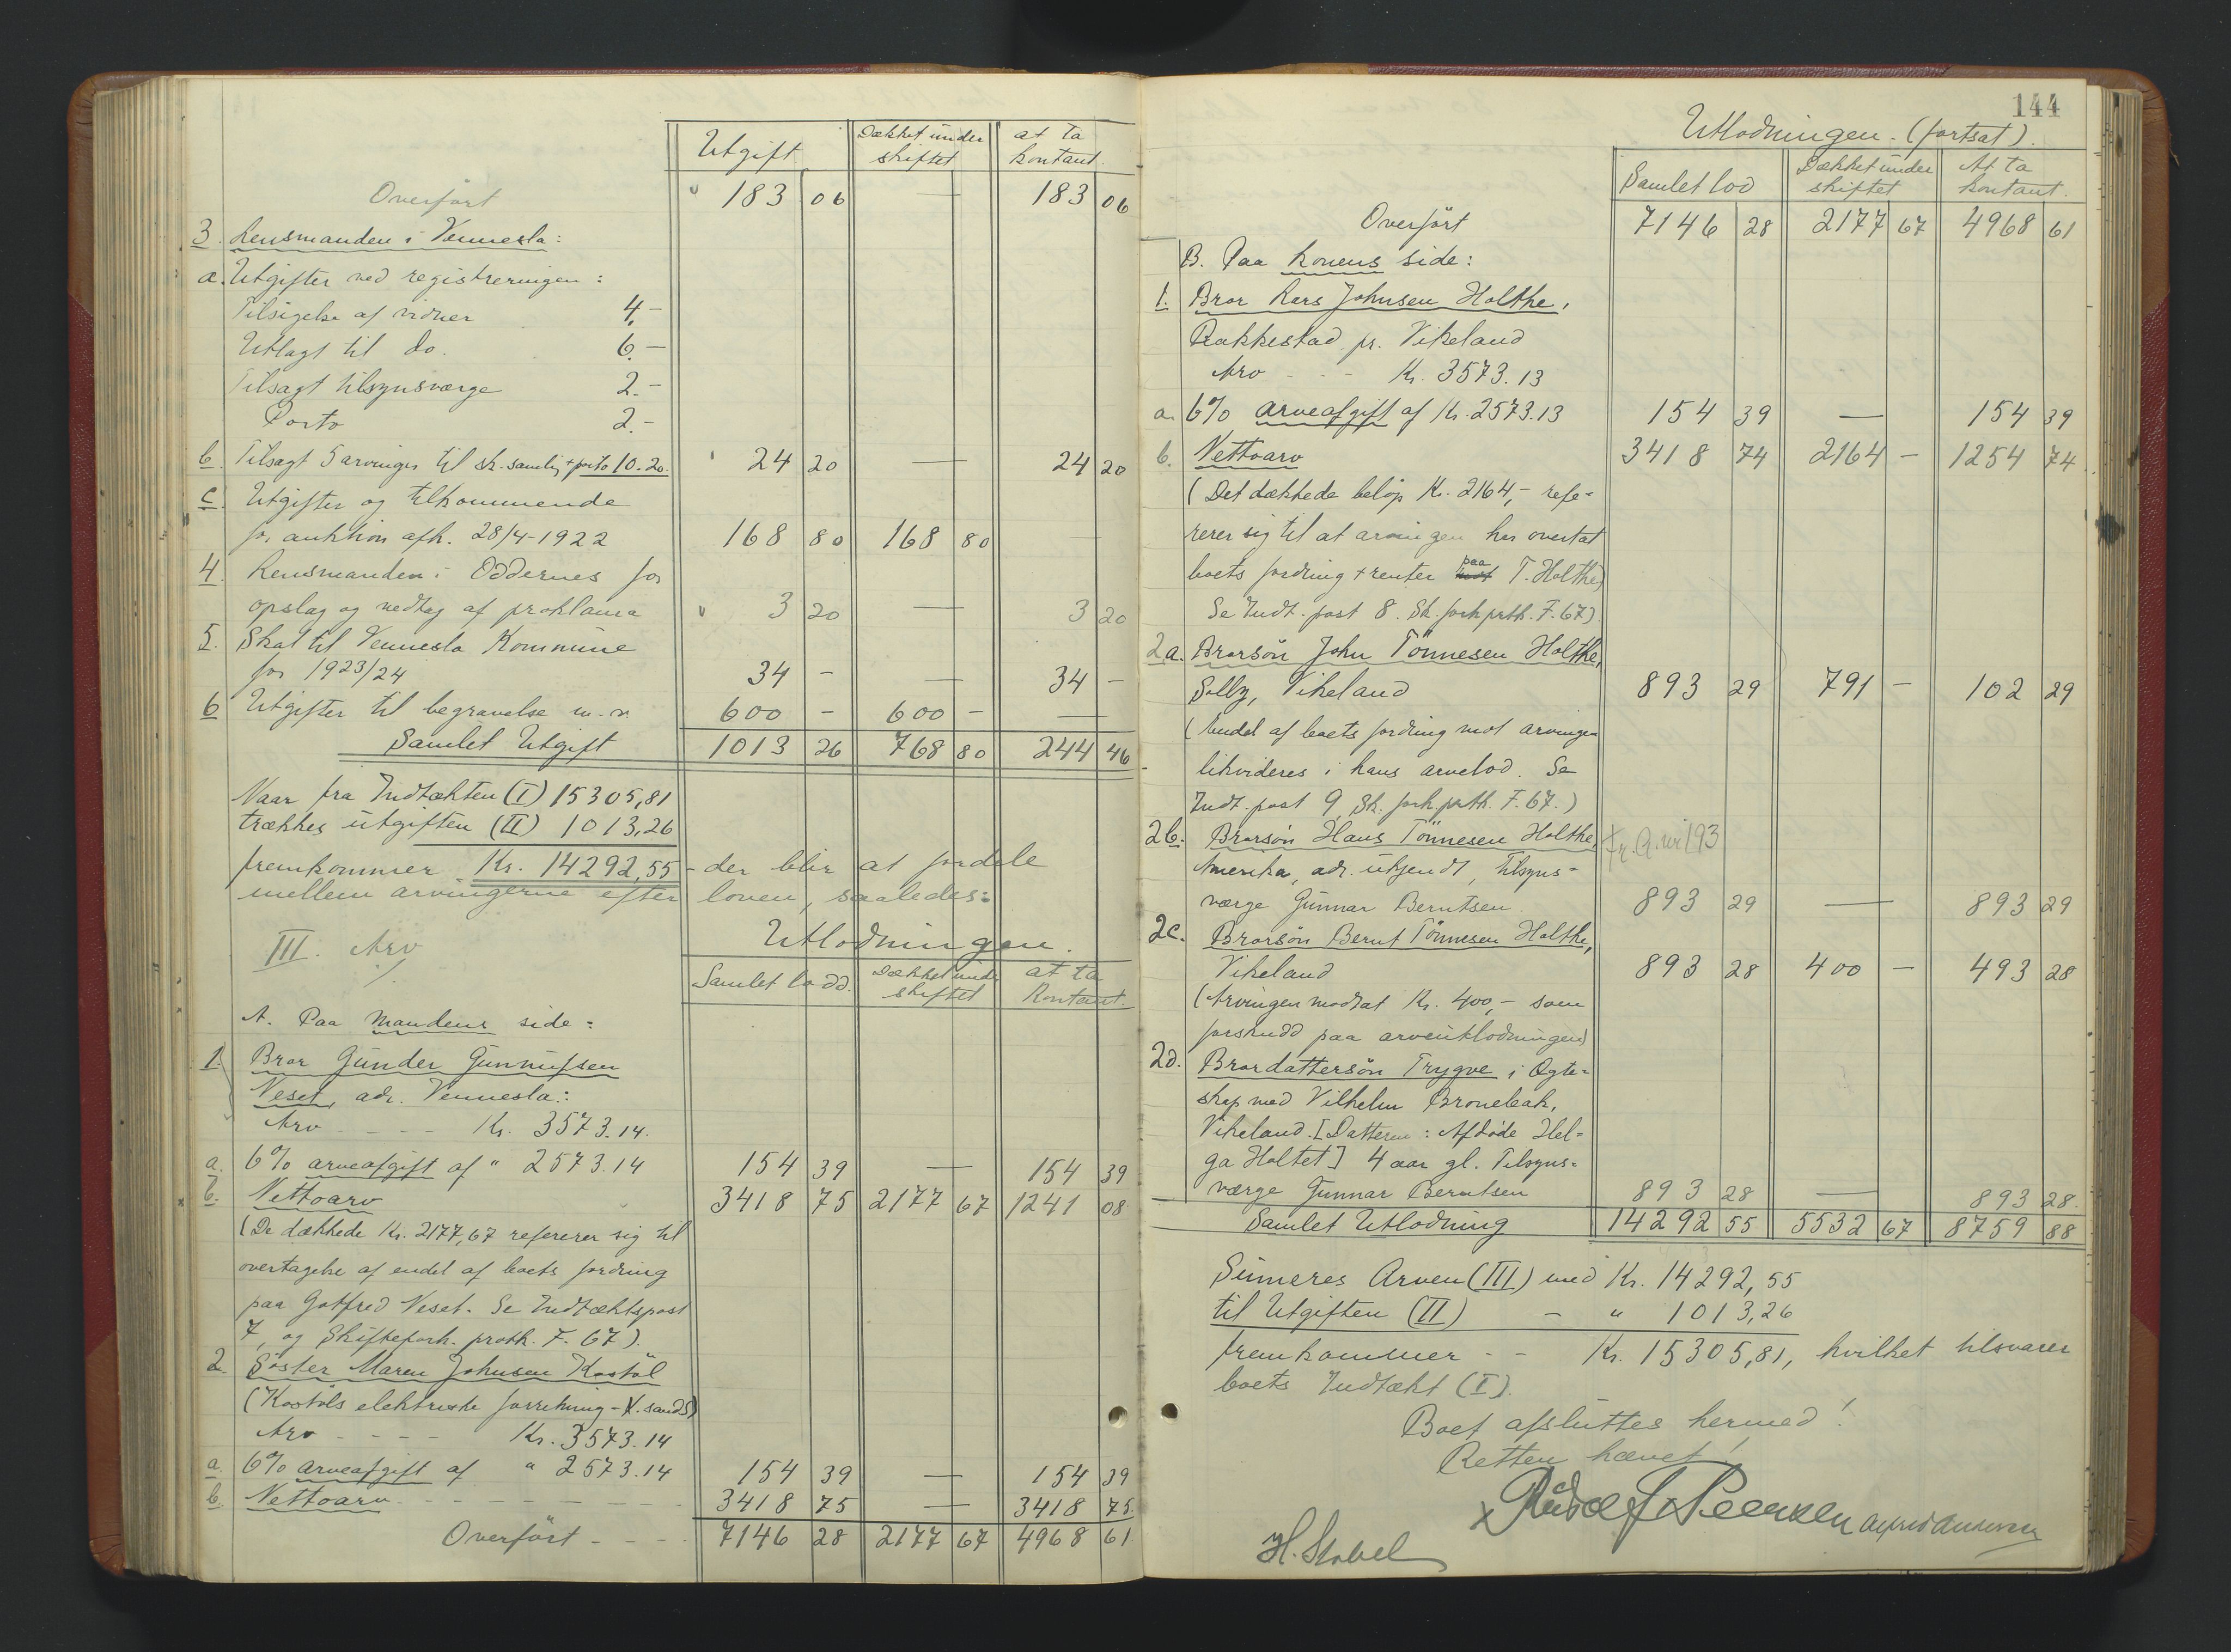 Utgift | Dækket under skiftet | at ta kontant
Overført 183 06 — 183 06
3. Lensmanden i Vennesla:
a. Utgifter ved registreringen:
Tilsigelse af vidner 4,-
Utlagt til do. 6.-
Tilsagt tilsynsværge 2.-
Porto 2.-
b. Tilsagt 5 arvinger til sk. samlg + porto 10.20. 24 20 — 24 20
c. Utgifter og tilkommende
for auktion afh. 28/4-1922 168 80 168 80 —
4. Lensmanden i Oddernes for
opslag og nedtag af proklama 3 20 — 3 20
5. Skat til Vennesla Kommune
for 1923/24 34 - — 34 -
6 Utgifter til begravelse m.v. 600 - 600 - —
Samlet Utgift 1013 26 768 80 244 46
Naar fra Indtækten (I) 15305,81
trækkes utgiften (II) 1013,26
fremkommer Kr. 14292,55 - der blir at fordele
mellem arvingerne efter loven, saaledes:
III. Arv
Utlodningen.
Samlet lodd. | Dækket under skiftet | at ta Kontant.
A. Paa Mandens side:
1. Bror Gunder Gunnufsen
Veset, adr. Vennesla:
Arv - - - - Kr. 3573.14.
a. 6% arveafgift af " 2573.14 154 39 — 154 39
b. Nettoarv 3418 75 2177 67 1241 08
(De dækkede Kr. 2177,67 refererer sig til
overtagelse af endel af boets fordring
paa Gotfred Veset. Se Indtæktspost
7, og Skifteforh. proth. F. 67).
2. Søster Maren Johnsen Kostøl
(Kostøls elektriske forretning - K.sands)
Arv - - - - Kr. 3573.14
a. 6% arveafgift af " 2573.14 154 39 — 154 39
b. Nettoarv - - - - - 3418 75 — 3418 75
Overført - - - - 7146 28 2177 67 4968 61
144
Utlodningen. (fortsat).
Samlet lod | Dækket under skiftet | At ta kontant.
Overført 7146 28 2177 67 4968 61
B. Paa Konens side:
1. Bror Lars Johnsen Holthe,
Rakkestad pr. Vikeland
Arv - - - Kr. 3573.13
a. 6% arveafgift af Kr. 2573.13 154 39 — 154 39
b. Nettoarv 3418 74 2164 - 1254 74
(Det dækkede beløp Kr. 2164,- refe-
rerer sig til at arvingen har overtat
boets fordring + renter paa T. Holthe)
Se Indt. post 8. Sk. forh. proth. F. 67).
2a. Brorsøn John Tönnesen Holthe,
Solly, Vikeland 893 29 791 - 102 29
(Endel af boets fordring mot arvingen
likvideres i hans arvelod. Se
Indt. post 9, Sk. forh. proth. F. 67.)
2b. Brorsøn Hans Tönnesen Holthe
Amerika, adr. ukjendt, tilsyns-
værge Gunnar Berntsen. 893 29 — 893 29
2c. Brorsøn Bernt Tönnesen Holthe,
Vikeland 893 28 400 - 493 28
(Arvingen modtat Kr. 400,- som
forskudd paa arveutlodningen)
2d. Brordattersøn Trygve i Ægte-
skap med Vilhelm Bronebak,
Vikeland. [Datteren: Afdøde Hel-
ga Holtet] 4 aar gl. Tilsyns-
værge Gunnar Berntsen 893 28 — 893 28.
Samlet Utlodning 14292 55 5532 67 8759 88
Summeres Arven (III) med Kr. 14292,55
til Utgiften (II) - " 1013,26
fremkommer - - Kr. 15305,81, hvilket tilsvarer
boets Indtækt (I).
Boet afsluttes hermed!
Retten hævet!
H. Stabel